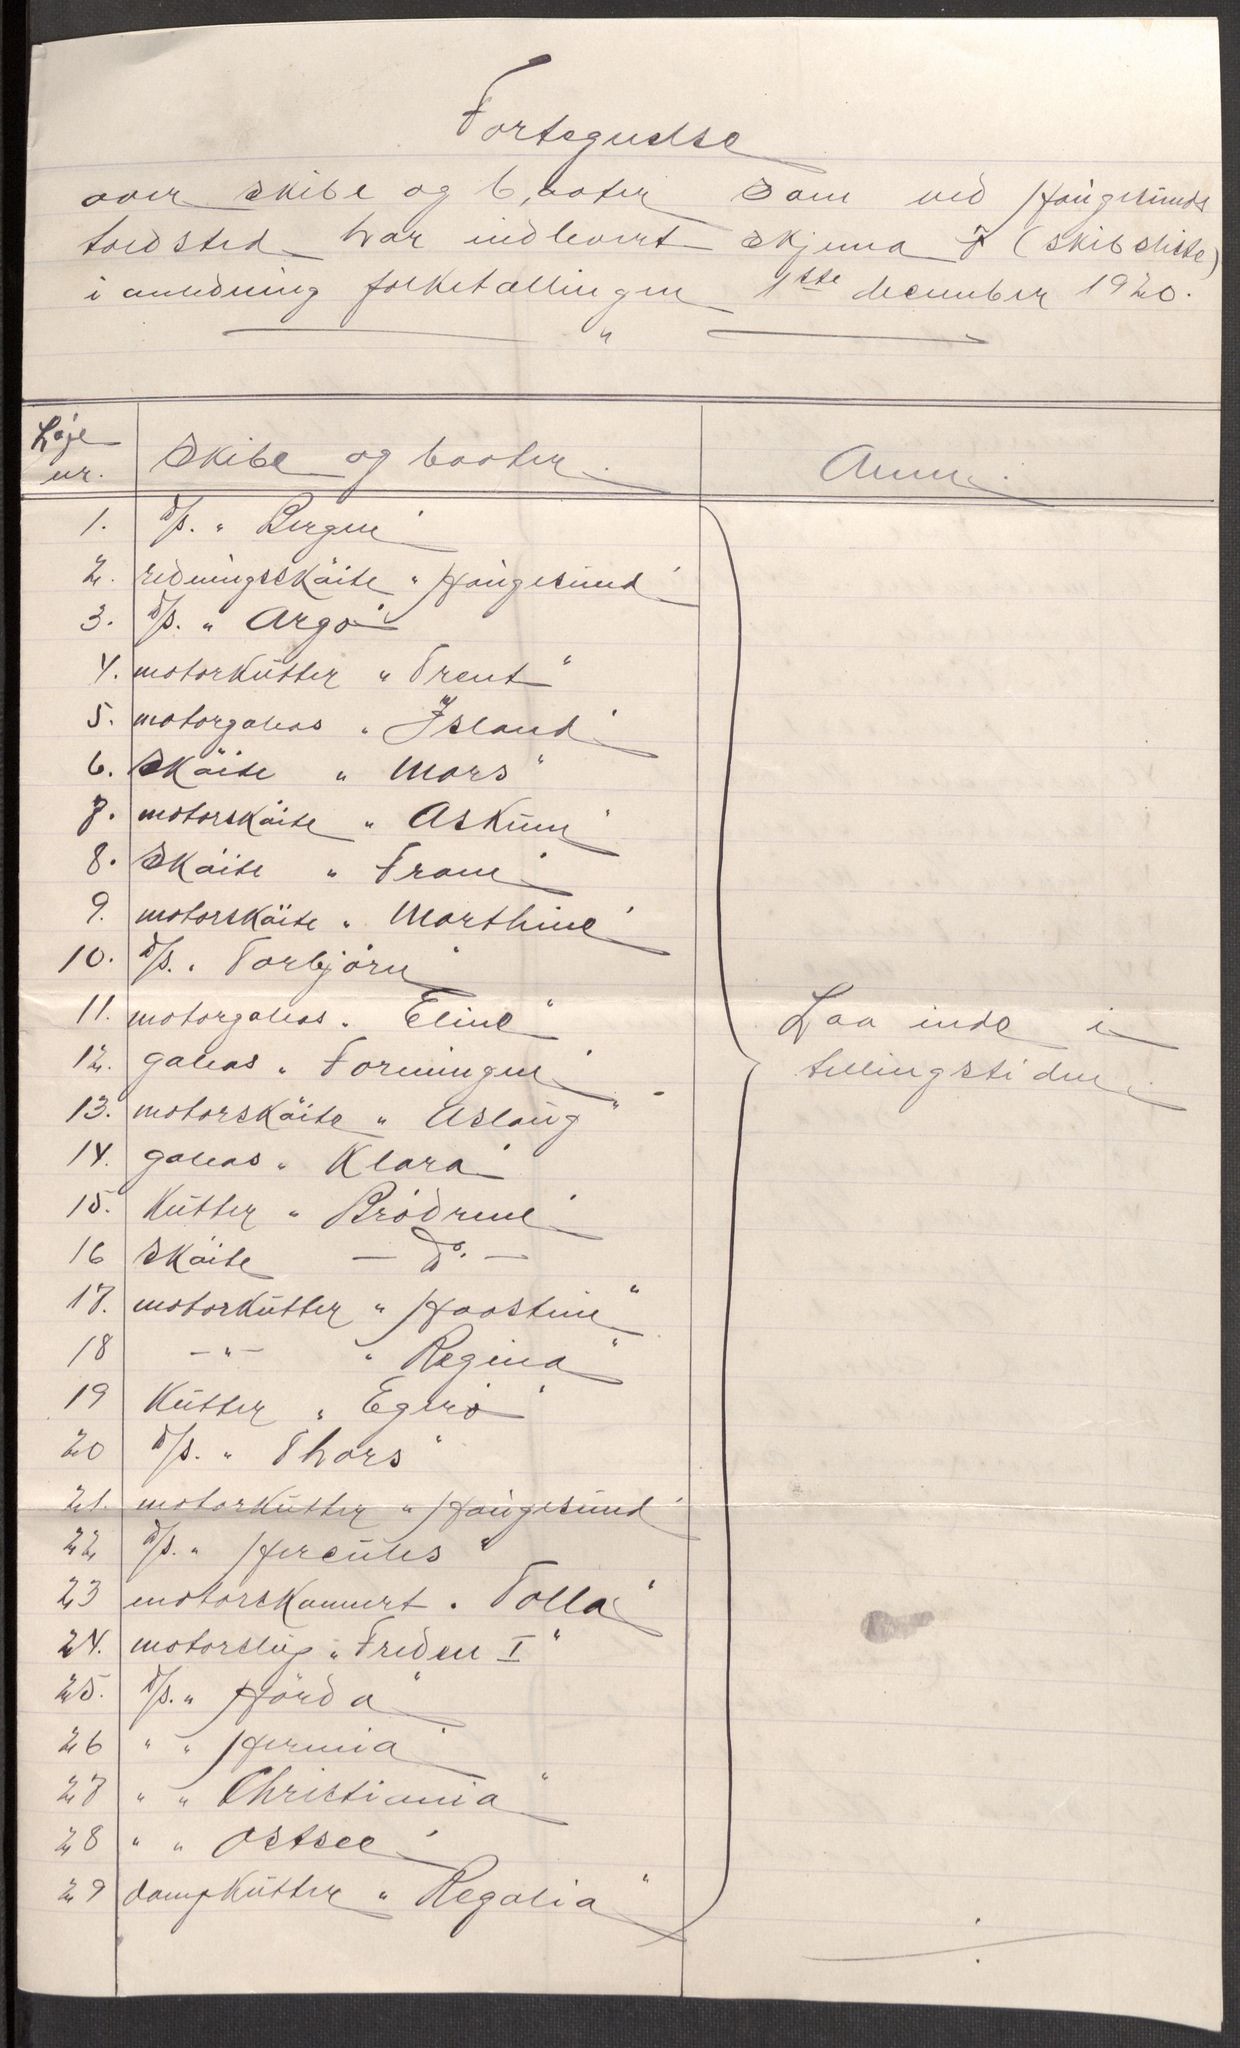 Fortegnelse
over skibe og baater som ved Haugesunds
toldsted har indlevert skjema 7 (skibsliste)
i anledning folketællingen 1ste december 1920.
"
Løpe nr. Skibe og baater. Anm.
1. D/s. "Bergen"
2. redningsskøite "Haugesund"
3. D/s. "Argo"
4. motorkutter "Trent"
5. motorgaleas "Island"
6. Skøite "Mars"
7. motorskøite "Askum"
8. Skøite "Fram"
9. motorskøite "Marthine"
10. D/s. "Torbjørn"
11. motorgaleas "Eline"
12. galeas "Foreningen"
13. motorskøite "Aslaug"
14. galeas "Klara"
15. Kutter "Brødrene"
16 Skøite - Do. -
17. motorkutter "Haasteine"
18 - " - "Regina"
19 Kutter "Egerø"
20 D/s. "Thors"
21. motorkutter "Haugesund"
22 D/s. "Hercules"
23 motorskonnert "Tolla"
24. motorslup "Freden I"
25. D/s. "Hörda"
26 " "Hermia"
27 " "Christiania"
28 " "Ostsee"
29 dampkutter "Regalia"
Laa inde i
tellingstiden.